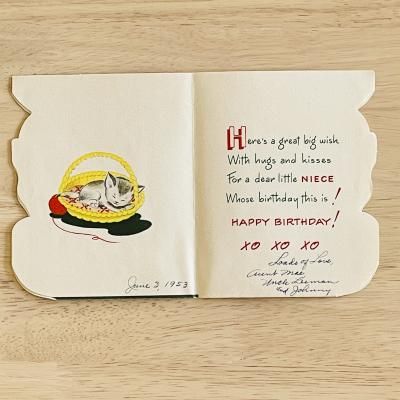 June 3, 1953
Here's a great big wish
With hugs and kisses
For a dear little NIECE
Whose birthday this is!
HAPPY BIRTHDAY!
XO XO XO
Loads of Love,
Aunt Mae
Uncle
and Johnny